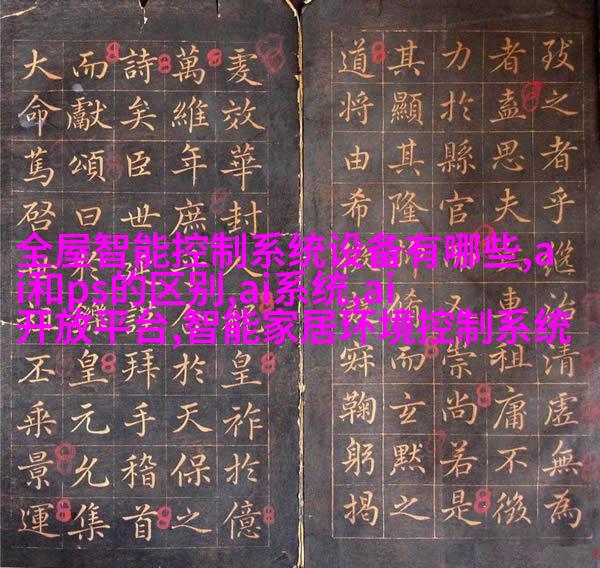 之者乎治清虛無為
者盍思夫車祖庸不微
力於縣官又崇尚若是
其顯其隆脩而玄默之
道將由希鞠躬揭
效華封人皇祚於億
萬維年庶於天保之
詩矣臣世拜手稽首
而獻頌曰於樂皇元允集
大命篤啓丕乘景運
全屋智能控制系统设备有哪些,a
i和ps的区别,ai系统,ai
开放平台,智能家居环境控制系统